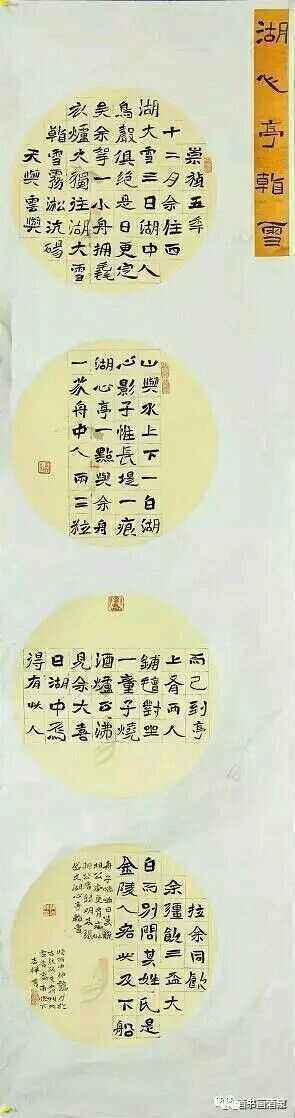 湖心亭看雪
崇禎五年
十二月余住西
湖大雪三日湖中人
鳥聲俱絕是日更定
矣余拏一小舟擁毳
衣爐火獨往湖大雪
看雪霧淞沆碭
天與雲與
山與水上下一白湖
心影子惟長堤一痕
湖心亭一點與余舟
一芥舟中人兩三粒
而已到亭
上有兩人
鋪氈對坐
一童子燒
酒爐正沸
見余大喜
曰湖中焉
得有此人
拉余同飲
余彊飲三盃大
白而別問其姓氏是
金陵人客此及下船
舟子喃喃曰莫說
相公癡更有癡似
相公者
湖心亭看雪